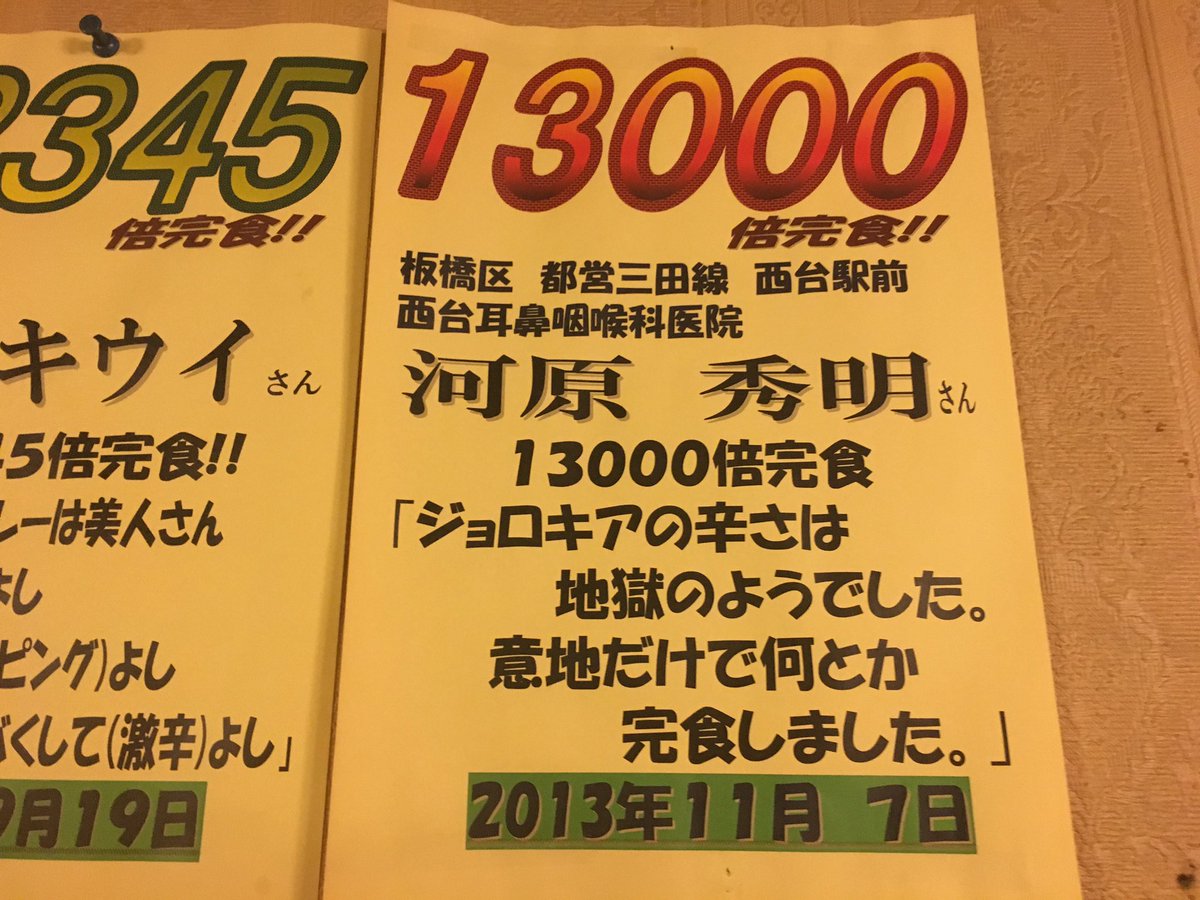 345
倍完食!!
キウイさん
45倍完食!!
レーは美人さん
よし
ピング)よし
くして(激辛)よし」
9月19日
13000
倍完食!!
板橋区 都営三田線 西台駅前
西台耳鼻咽喉科医院
河原 秀明さん
13000倍完食
「ジョロキアの辛さは
地獄のようでした。
意地だけで何とか
完食しました。」
2013年11月 7日